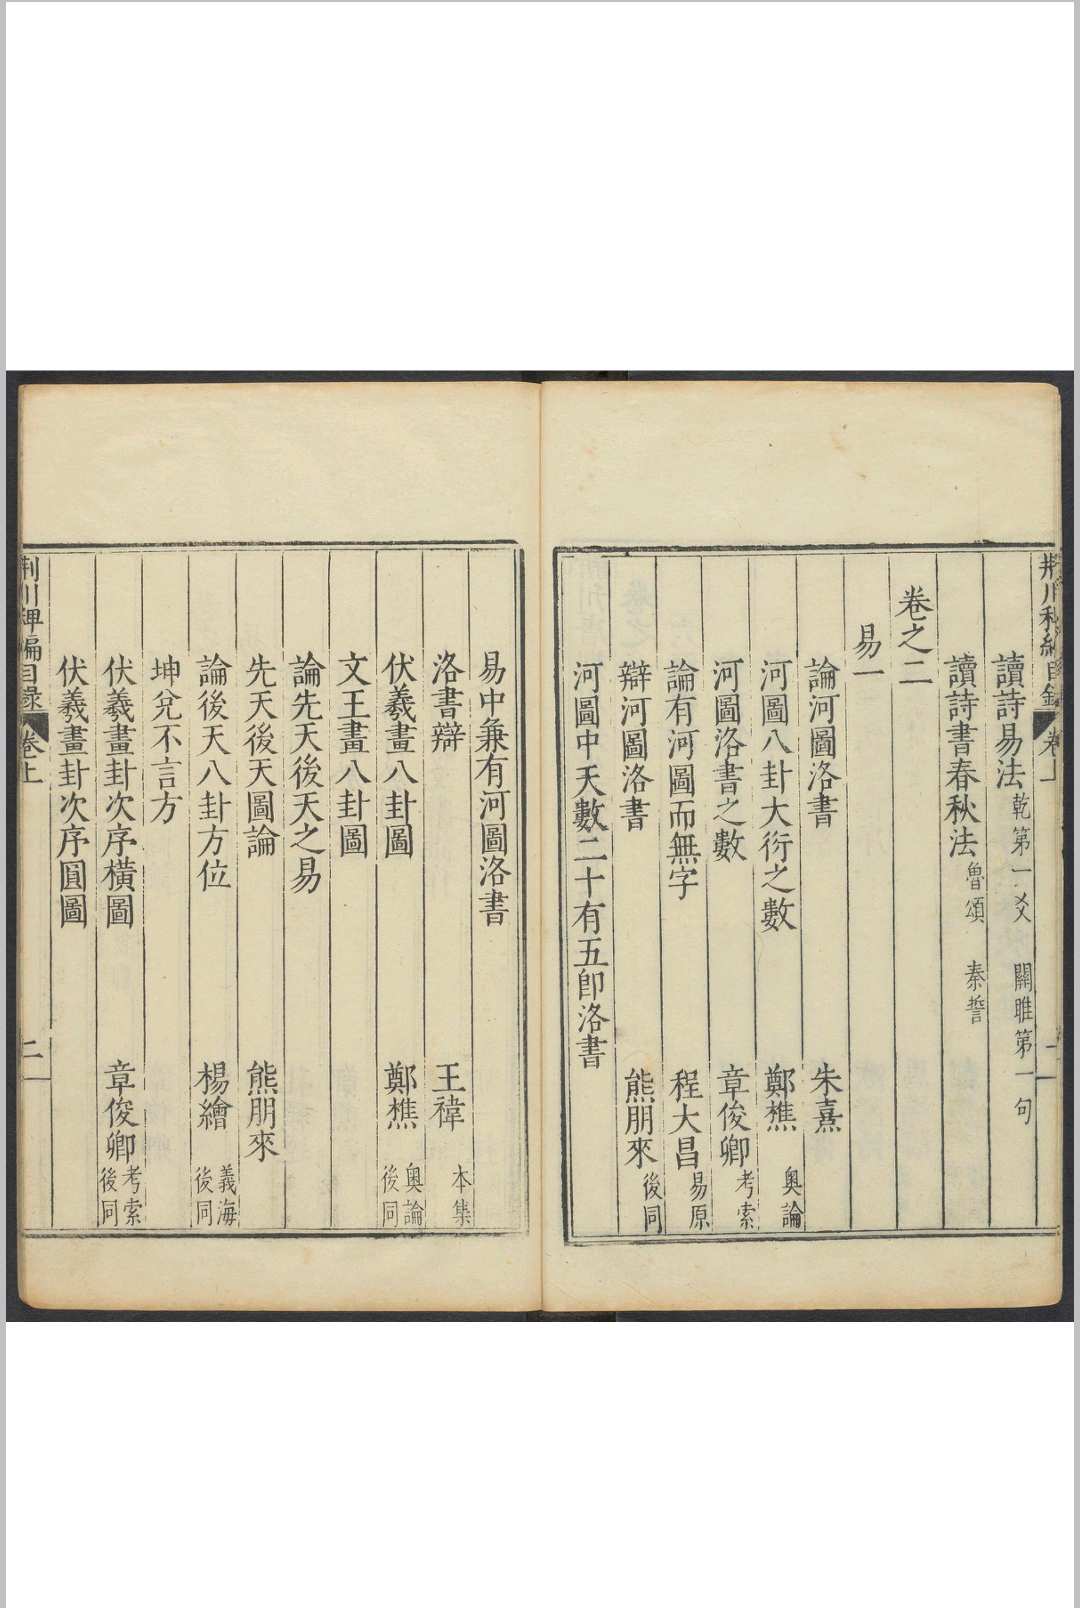 讀詩易法 乾第一爻 關雎第一句
讀詩書春秋法 魯頌 秦誓
卷之二
易一
論河圖洛書 朱熹
河圖八卦大衍之數 鄭樵 奧論
河圖洛書之數 章俊卿 考索
論有河圖而無字 程大昌 易原
辯河圖洛書 熊朋來 後同
河圖中天數二十有五即洛書
易中兼有河圖洛書
洛書辯 王褘 本集
伏羲畫八卦圖 鄭樵 奧論後同
文王畫八卦圖
論先天後天之易
先天後天圖論 熊朋來
論後天八卦方位 楊繪 義海後同
坤兌不言方
伏羲畫卦次序橫圖 章俊卿 考索後同
伏羲畫卦次序圓圖
荊川稗編目錄 卷上 二